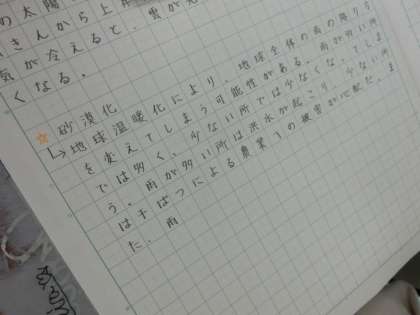 の太陽
きんから上
気が冷えると、雲が
くなる。
☆ 砂漠化
↳地球温暖化により、地球全体の雨の降り方
を変えてしまう可能性がある。雨が多い所
では多く、少ない所では少なくなってしま
う。雨が多い所は洪水が起こり、少ない所
は干ばつによる農業への被害が心配だ。ま
た、雨